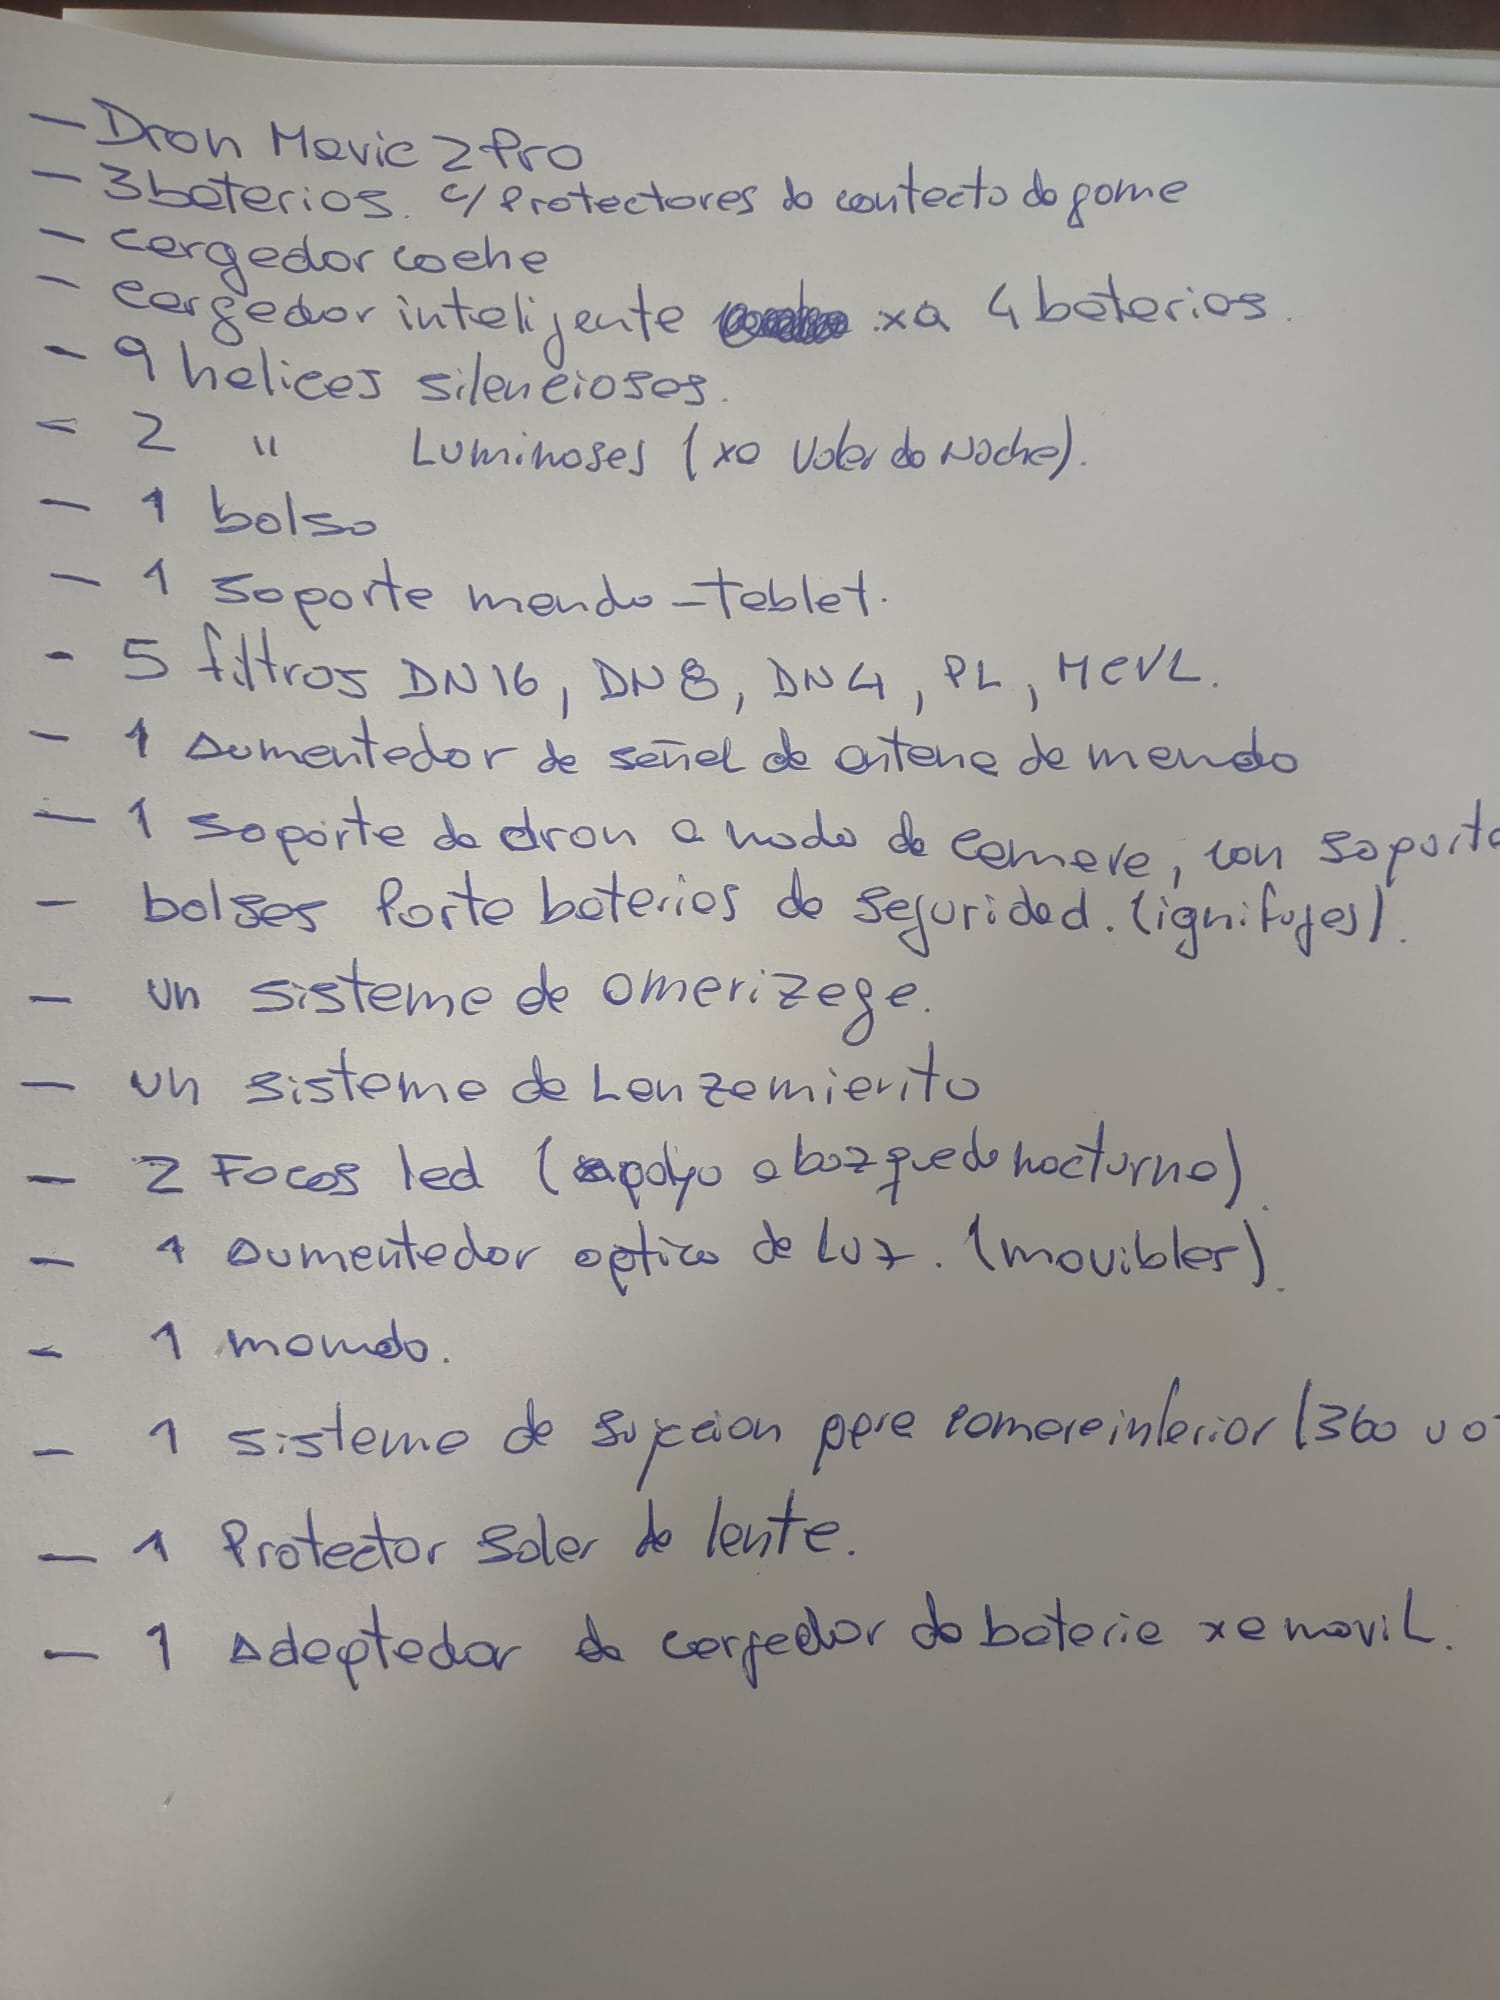 - Dron Mavic 2 Pro
- 3 baterias. c/ Protectores de contacto de goma
- cargador coche
- cargador inteligente xa 4 baterias.
- 9 helices silenciosas.
- 2 " Luminosas (xa Volar de Noche).
- 1 bolso
- 1 soporte mando - tablet.
- 5 filtros DN16, DN8, DN4, PL, MCVL.
- 1 Aumentador de señal de antena de mando
- 1 soporte de dron a modo de camara, con soporte
- bolsas Porta baterias de seguridad. (ignifugas).
- un sistema de amarizage.
- un sistema de Lanzamiento
- 2 Focos led (apoyo a bozqueda nocturna).
- 1 Aumentador optico de luz. (movibles).
- 1 mando.
- 1 sistema de sujecion para camara inferior (360 u o
- 1 Protector solar de lente.
- 1 Adaptador de cargador de bateria xa movil.